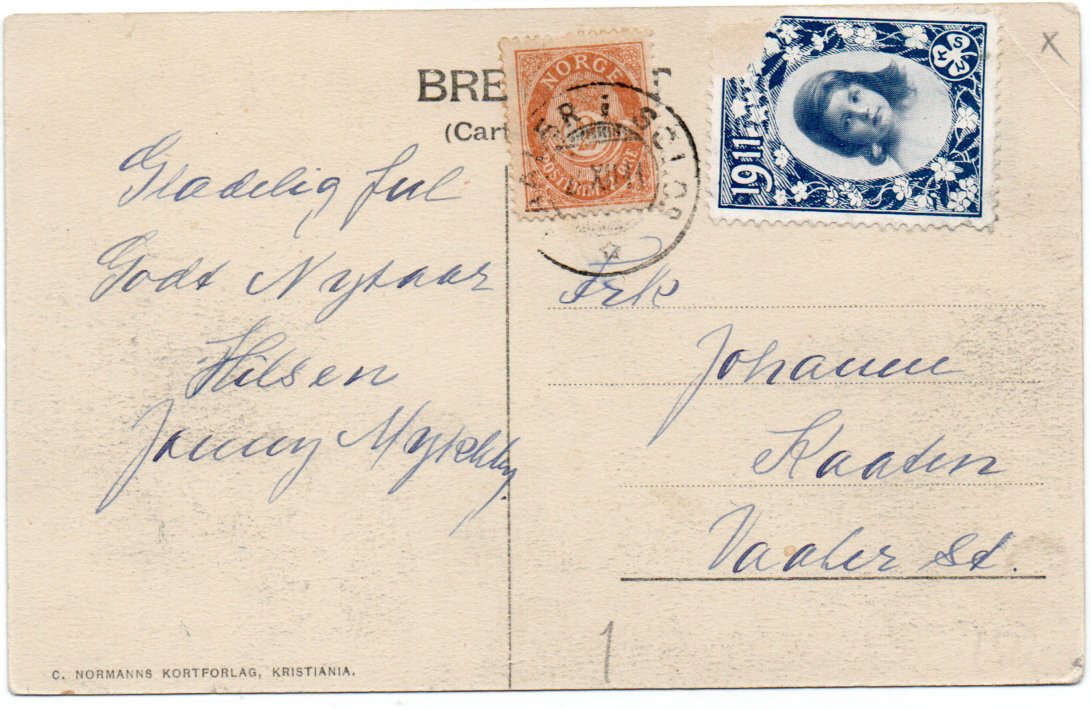 BRE
(Cart
NORGE
POSTFRIM
1911
NKS
Glædelig Jul
Godt Nytaar
Hilsen
Jenny Myhkby
Frk
Johanne
Kaaten
Vaaler St.
1
x
C. NORMANNS KORTFORLAG, KRISTIANIA.